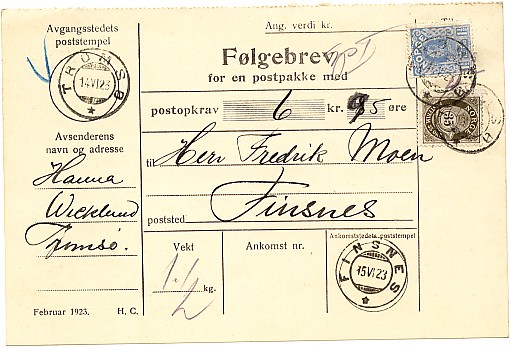 Avgangsstedets
poststempel
Ang. verdi kr.
Til
TROMSØ
14 VI 23
Følgebrev
for en postpakke med
postopkrav 6 kr. 95 øre
Avsenderens
navn og adresse
Hanna
Wicklund
Tromsø.
til Herr Fredrik Moen
poststed: Finsnes
Vekt
1 1/2
kg.
Ankomst nr.
Ankomststedets poststempel
FINSNES
15 VI 23
Februar 1923. H. C.